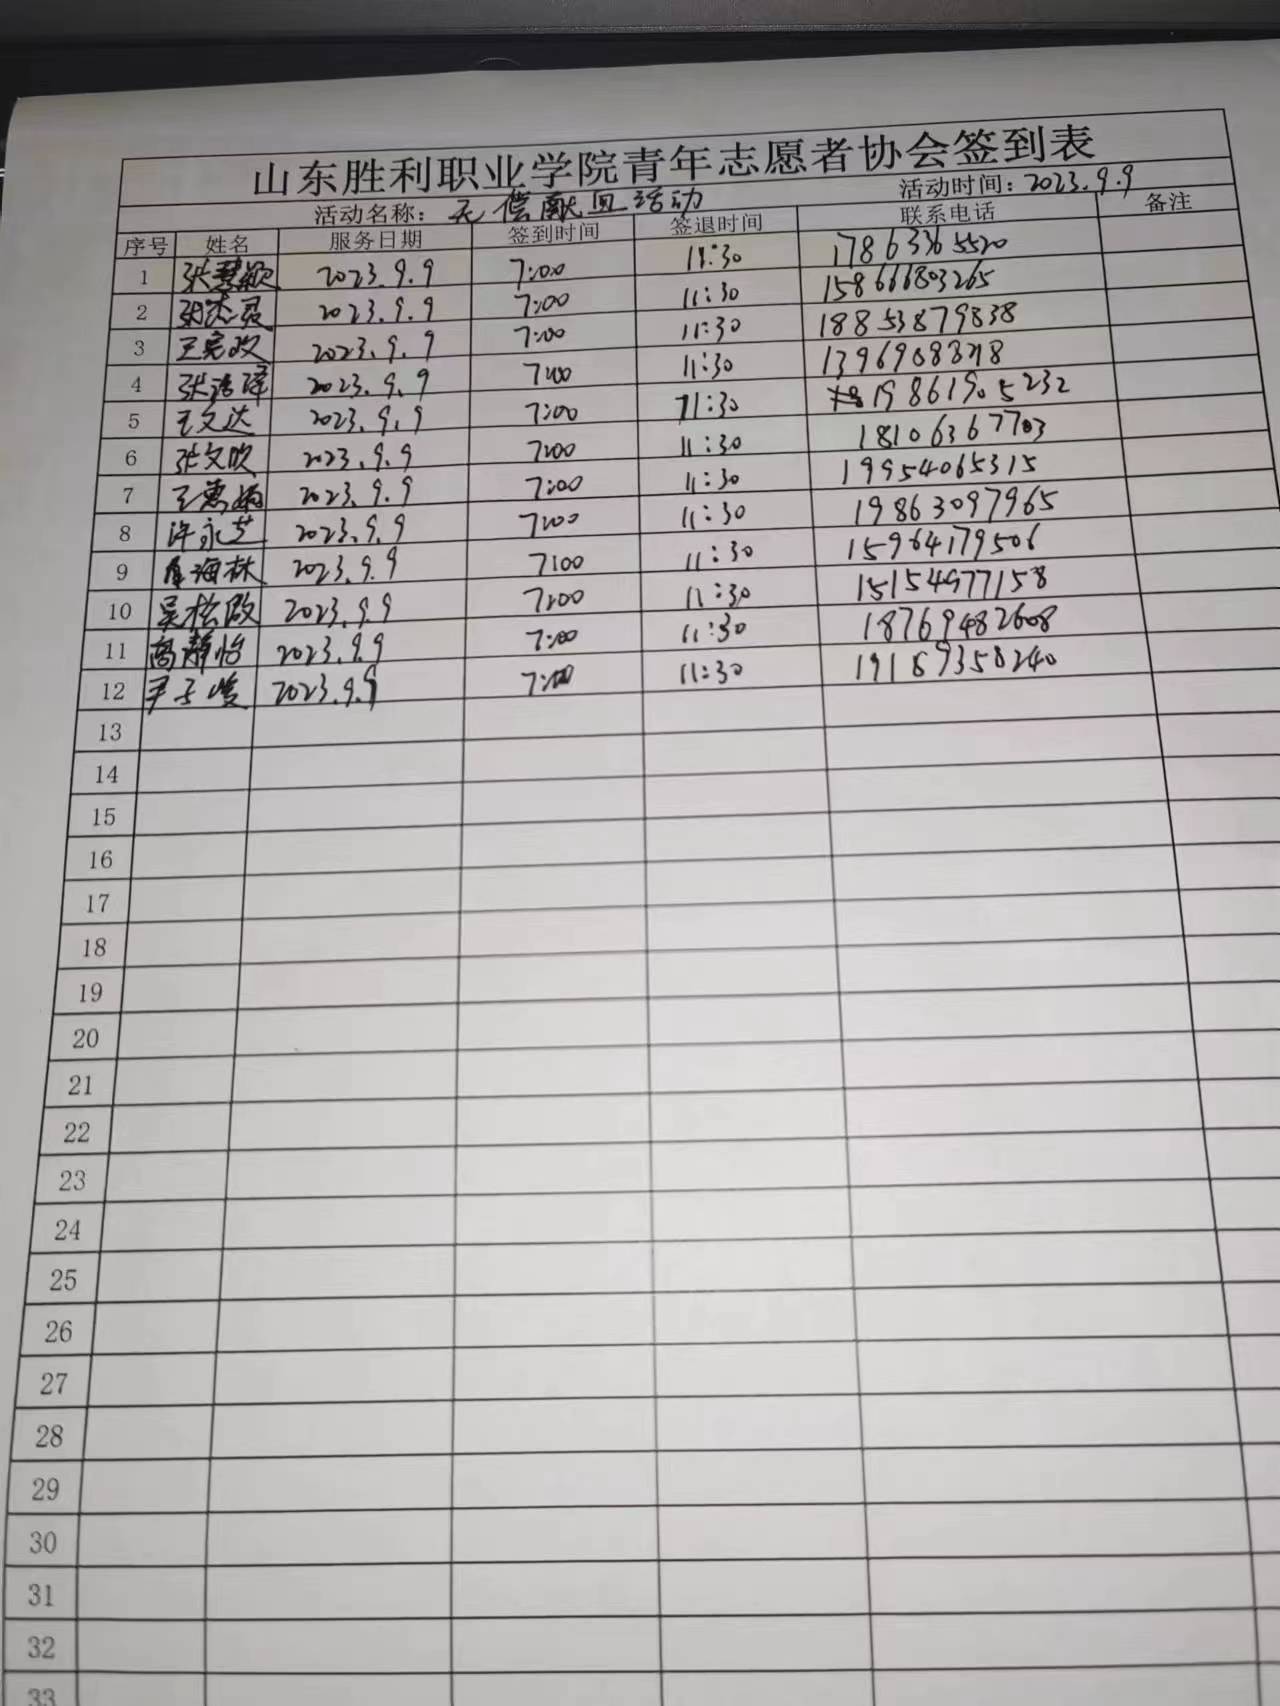 山东胜利职业学院青年志愿者协会签到表
活动名称：无偿献血活动 活动时间：2023.9.9
序号 姓名 服务日期 签到时间 签退时间 联系电话 备注
1 张慧颖 2023.9.9 7:00 11:30 17863365520
2 2023.9.9 7:00 11:30 158666803265
3 2023.9.9 7:00 11:30 18853879838
4 2023.9.9 7:00 11:30
5 王文达 2023.9.9 7:00 11:30 19861905232
6 2023.9.9 7:00 11:30 18106367703
7 2023.9.9 7:00 11:30 19954065315
8 许永芝 2023.9.9 7:00 11:30 19863097965
9 2023.9.9 7:00 11:30 15964179506
10 2023.9.9 7:00 11:30 15154977158
11 高静怡 2023.9.9 7:00 11:30 18769482608
12 尹子峻 2023.9.9 7:00 11:30 19189358240
13
14
15
16
17
18
19
20
21
22
23
24
25
26
27
28
29
30
31
32
33